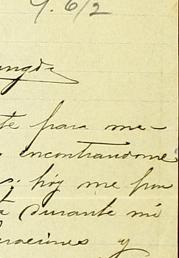 9. 6/2
te para me-
encontrandome
hoy me pon
durante mi
raciones y